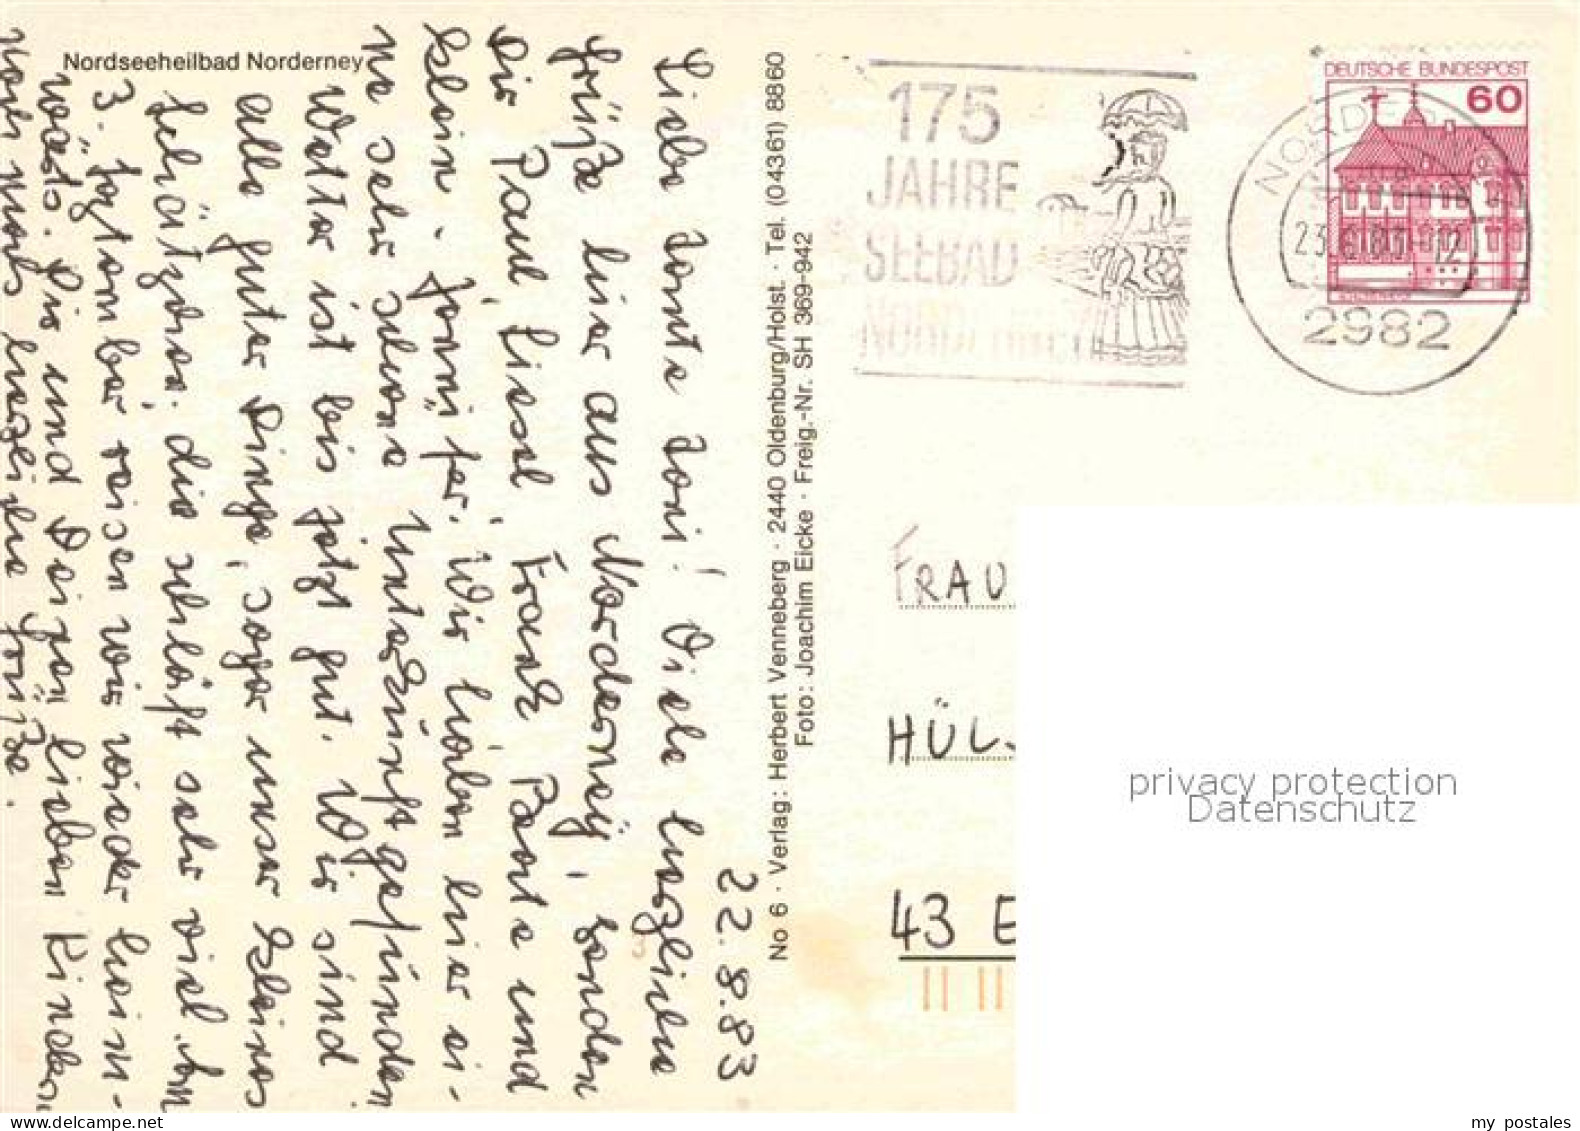 Nordseeheilbad Norderney
22.8.83
Liebe Tante Toni! Viele herzliche
Grüße hier aus Norderney, senden
Dir Paul, Lissel, Frank, Beate und
klein - Jennifer. Wir haben hier ei-
ne sehr schöne Unterkunft gefunden
Wetter ist bis jetzt gut. Wir sind
alle guter Dinge, sogar unser kleines
Schätzchen. die schläft sehr viel. Am
3. September reisen wir wieder heim-
wärts. Dir und Deinen lieben Kindern
noch mals herzliche Grüße.
No 6 · Verlag: Herbert Venneberg · 2440 Oldenburg/Holst. · Tel. (04361) 8860
Foto: Joachim Eicke · Freig.-Nr. SH 369-942
175
JAHRE
SEEBAD
NORDERNEY
DEUTSCHE BUNDESPOST
60
NORDE
2982
FRAU
HÜL
43 E
privacy protection
Datenschutz
www.delcampe.net
my postales